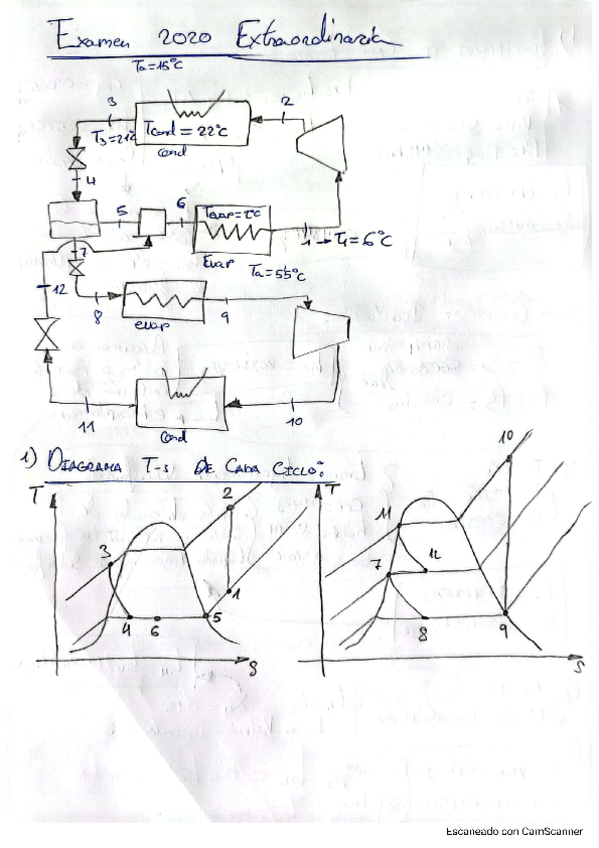 Examen 2020 Extraordinaria
Ta=15°C
3
2
T3=21°C
Tcond = 22°C
cond
4
5
6
7
Evap
1 → T1=6°C
12
8
evap
9
11
cond
10
1) DIAGRAMA T-s DE CADA CICLO:
T
2
3
1
4
6
5
S
T
10
11
12
7
8
9
S
Escaneado con CamScanner